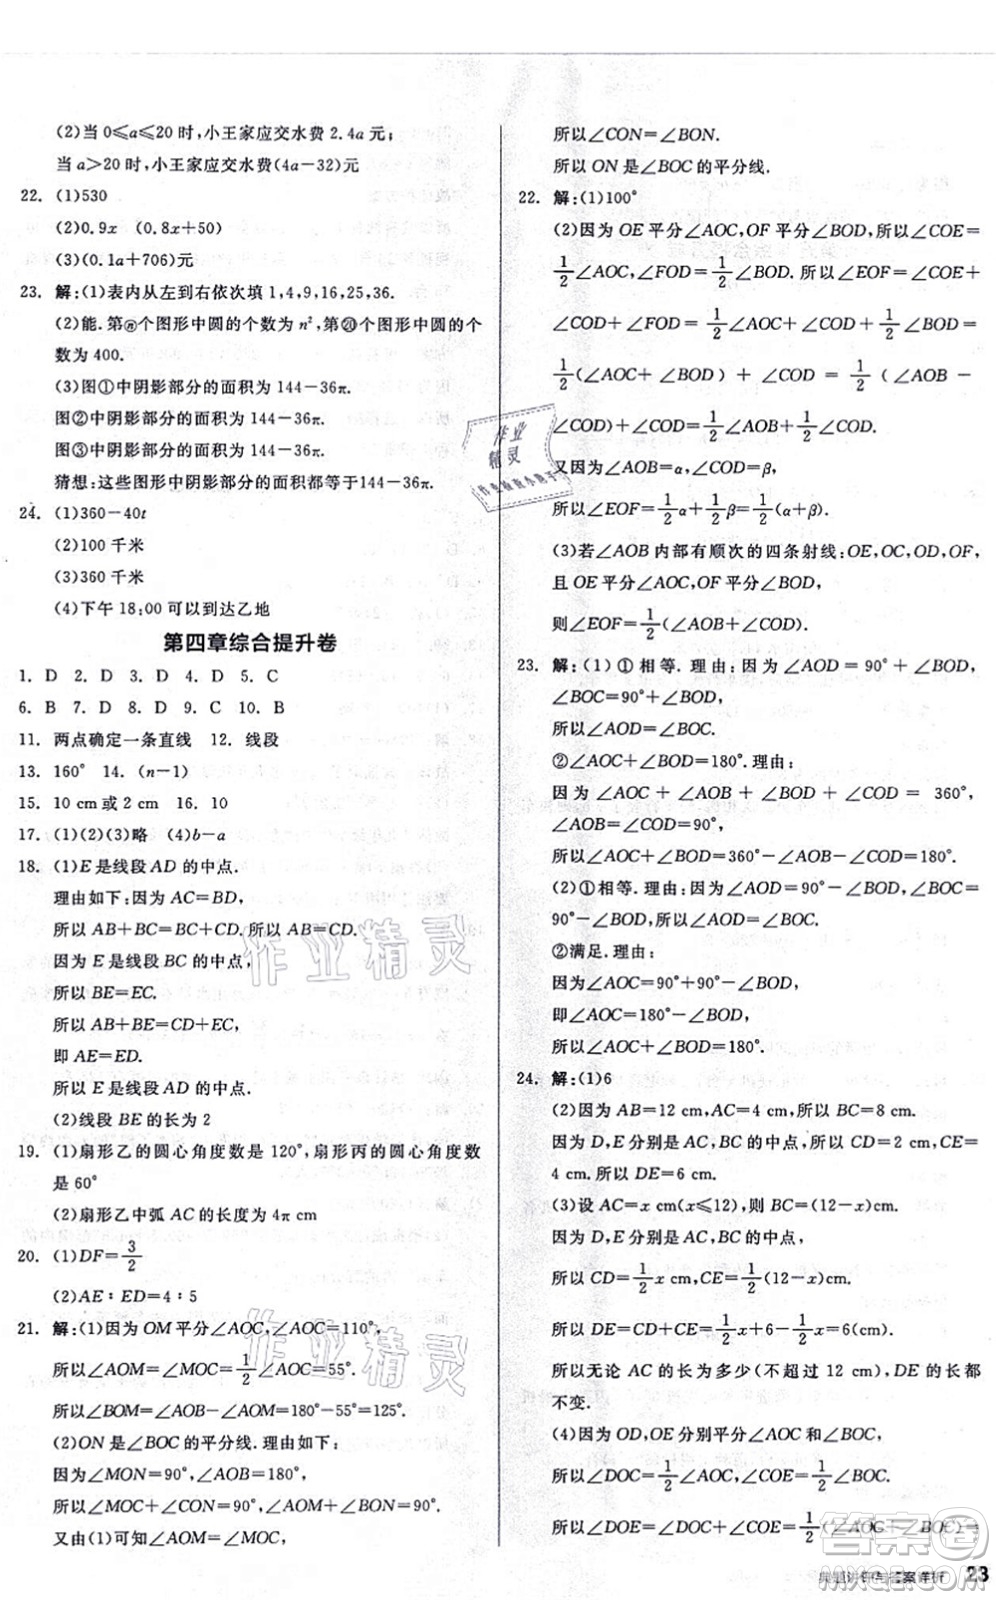 (2)当 0≤a≤20 时,小王家应交水费 2.4a 元;
当 a>20 时,小王家应交水费(4a-32)元
22. (1)530
(2)0.9x (0.8x+50)
(3)(0.1a+706)元
23. 解:(1)表内从左到右依次填 1,4,9,16,25,36.
(2)能. 第ⓝ个图形中圆的个数为 n²,第⑳个图形中圆的个
数为 400.
(3)图①中阴影部分的面积为 144-36π.
图②中阴影部分的面积为 144-36π.
图③中阴影部分的面积为 144-36π.
猜想:这些图形中阴影部分的面积都等于144-36π.
24. (1)360-40t
(2)100 千米
(3)360 千米
(4)下午 18:00 可以到达乙地
第四章综合提升卷
1. D 2. D 3. D 4. D 5. C
6. B 7. D 8. D 9. C 10. B
11. 两点确定一条直线 12. 线段
13. 160° 14. (n-1)
15. 10 cm 或 2 cm 16. 10
17. (1)(2)(3)略 (4)b-a
18. (1)E 是线段 AD 的中点.
理由如下:因为 AC=BD,
所以 AB+BC=BC+CD. 所以 AB=CD.
因为 E 是线段 BC 的中点,
所以 BE=EC.
所以 AB+BE=CD+EC,
即 AE=ED.
所以 E 是线段 AD 的中点.
(2)线段 BE 的长为 2
19. (1)扇形乙的圆心角度数是 120°,扇形丙的圆心角度数
是 60°
(2)扇形乙中弧 AC 的长度为 4π cm
20. (1)DF=3/2
(2)AE:ED=4:5
21. 解:(1)因为 OM 平分∠AOC,∠AOC=110°,
所以∠AOM=∠MOC=1/2∠AOC=55°.
所以∠BOM=∠AOB-∠AOM=180°-55°=125°.
(2)ON 是∠BOC 的平分线. 理由如下:
因为∠MON=90°,∠AOB=180°,
所以∠MOC+∠CON=90°,∠AOM+∠BON=90°.
又由(1)可知∠AOM=∠MOC,
所以∠CON=∠BON.
所以 ON 是∠BOC 的平分线.
22. 解:(1)100°
(2)因为 OE 平分∠AOC,OF 平分∠BOD,所以∠COE=
1/2∠AOC,∠FOD=1/2∠BOD. 所以∠EOF=∠COE+
∠COD+∠FOD=1/2∠AOC+∠COD+1/2∠BOD=
1/2(∠AOC+∠BOD)+∠COD=1/2(∠AOB-
∠COD)+∠COD=1/2∠AOB+1/2∠COD.
又因为∠AOB=α,∠COD=β,
所以∠EOF=1/2α+1/2β=1/2(α+β).
(3)若∠AOB 内部有顺次的四条射线:OE,OC,OD,OF,
且 OE 平分∠AOC,OF 平分∠BOD,
则∠EOF=1/2(∠AOB+∠COD).
23. 解:(1)①相等. 理由:因为∠AOD=90°+∠BOD,
∠BOC=90°+∠BOD,
所以∠AOD=∠BOC.
②∠AOC+∠BOD=180°. 理由:
因为∠AOC+∠AOB+∠BOD+∠COD=360°,
∠AOB=∠COD=90°,
所以∠AOC+∠BOD=360°-∠AOB-∠COD=180°.
(2)①相等. 理由:因为∠AOD=90°-∠BOD,∠BOC=
90°-∠BOD,所以∠AOD=∠BOC.
②满足. 理由:
因为∠AOC=90°+90°-∠BOD,
即∠AOC=180°-∠BOD,
所以∠AOC+∠BOD=180°.
24. 解:(1)6
(2)因为 AB=12 cm,AC=4 cm,所以 BC=8 cm.
因为 D,E 分别是 AC,BC 的中点,所以 CD=2 cm,CE=
4 cm. 所以 DE=6 cm.
(3)设 AC=x cm(x≤12),则 BC=(12-x)cm.
因为 D,E 分别是 AC,BC 的中点,
所以 CD=1/2x cm,CE=1/2(12-x)cm.
所以 DE=CD+CE=1/2x+6-1/2x=6(cm).
所以无论 AC 的长为多少(不超过 12 cm),DE 的长都
不变.
(4)因为 OD,OE 分别平分∠AOC,∠BOC,
所以∠DOC=1/2∠AOC,∠COE=1/2∠BOC.
所以∠DOE=∠DOC+∠COE=1/2(∠AOC+∠BOC)=
典题讲评与答案详析 23
作业精灵
作业精灵
作业精灵
答案圈